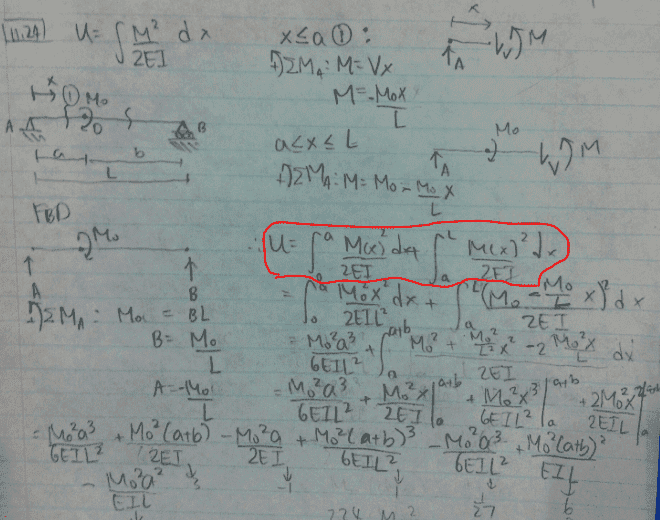 11.24 U = ∫ M²/2EI dx
x ≤ a ① :
↑)ΣM_A : M = Vx
M = -M₀x/L
x A V M
x ① M₀
A D B
a b
L
a ≤ x ≤ L
↑)ΣM_A : M = M₀ - M₀/L x
M₀ A V M
FBD
M₀
A B
↑)ΣM_A : M₀ = BL
B = M₀/L
A = -M₀/L
∴ U = ∫₀^a M(x)²/2EI dx + ∫_a^L M(x)²/2EI dx
= ∫₀^a M₀²x²/2EIL² dx + ∫_a^L (M₀ - M₀/L x)²/2EI dx
= M₀²a³/6EIL² + ∫_a^{a+b} M₀² + M₀²/L² x² - 2 M₀²x/L /2EI dx
= M₀²a³/6EIL² + M₀²x/2EI |_a^{a+b} + M₀²x³/6EIL² |_a^{a+b} + 2M₀²x²/2EIL |_a^{a+b}
= M₀²a³/6EIL² + M₀²(a+b)/2EI - M₀²a/2EI + M₀²(a+b)³/6EIL² - M₀²a³/6EIL² + M₀²(a+b)²/EIL
- M₀²a²/EIL